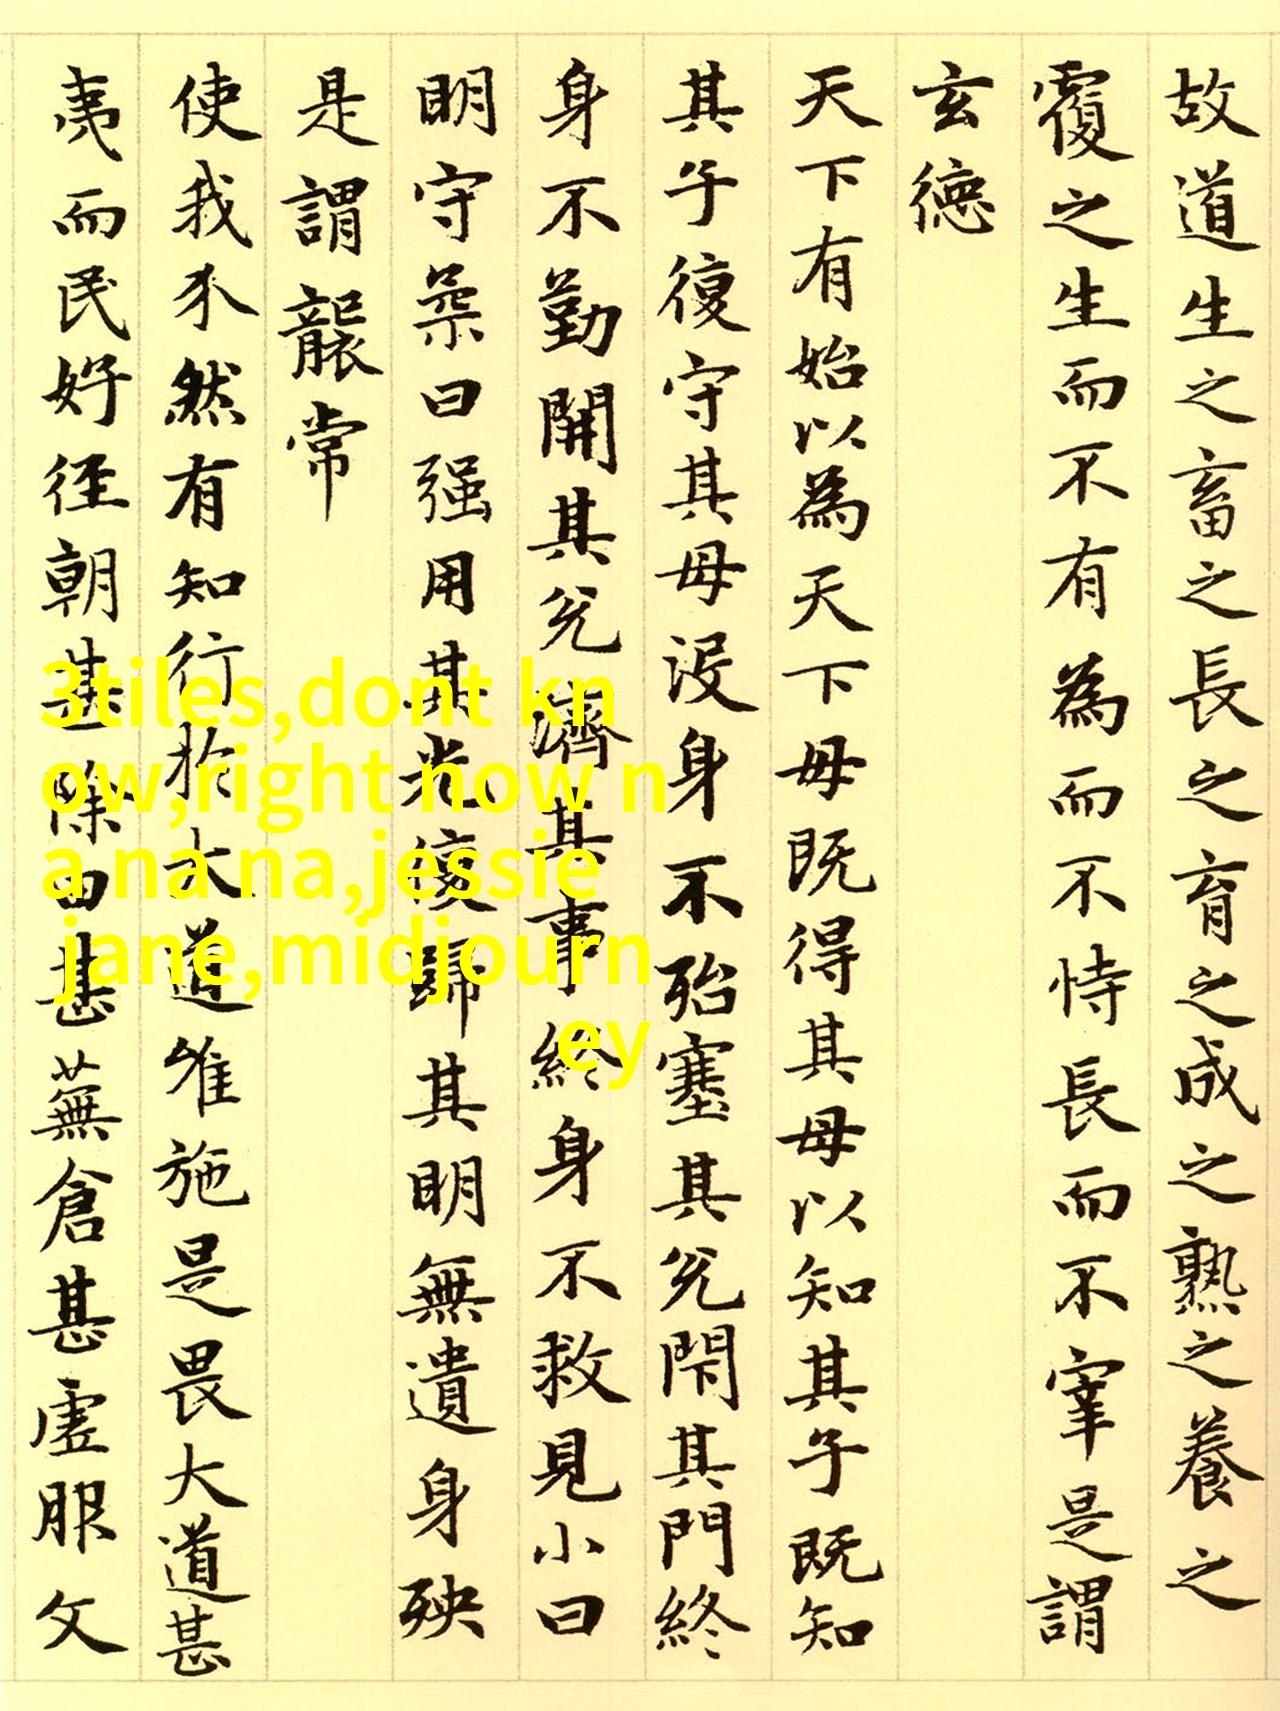 故道生之畜之長之育之成之熟之養之
覆之生而不有為而不恃長而不宰是謂
玄德
天下有始以為天下母既得其母以知其子既知
其子復守其母沒身不殆塞其兌閉其門終
身不勤開其兌濟其事終身不救見小曰
明守柔曰强用其光復歸其明無遺身殃
是謂襲常
使我介然有知行於大道唯施是畏大道甚
夷而民好徑朝甚除田甚蕪倉甚虛服文
3tiles,dont kn
ow,right now n
a na na,jessie
jane,midjourn
ey